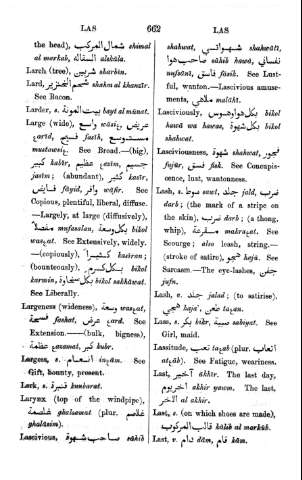 LAS 662 LAS
the head), شمال المركب shimal
al markab, السقالة alskâla.
Larch (tree), شربين sharbîn.
Lard, شحم الخنزير shahm al khanzîr.
See Bacon.
Larder, s. بيت المونة bayt al mûnat.
Large (wide), واسع wâsiع, عريض
عarîd, فسيح fasîh, متسوع
mustawsiع. See Broad.—(big),
كبير kabîr, عظيم عazîm, جسيم
jasîm; (abundant), كثير kasîr,
فايض fâyid, وافر wâfir. See
Copious, plentiful, liberal, diffuse.
—Largely, at large (diffusively),
مفصلاً mufasalan, بكل وسعة bikol
wasعat. See Extensively, widely.
—(copiously), كثيراً kasîran;
(bounteously), بكل كرم bikol
karmin, بكل سخاوة bikol sakhâwat.
See Liberally.
Largeness (wideness), وسعة wasعat,
فسحة fashat, عرض عard. See
Extension.—(bulk, bigness),
عظمة عazmat, كبر kubr.
Largess, s. انعام inعâm. See
Gift, bounty, present.
Lark, s. قنبرة kunbarat.
Larynx (top of the windpipe),
غلصمة ghalsamat (plur. غلاصم
ghalâsim).
Lascivious, صاحب شهوة sâhib
shahwat, شهواتي shahwâtî,
صاحب هوا sâhib hawâ, نفساني
nufsânî, فاسق fâsik. See Lust-
ful, wanton.—Lascivious amuse-
ments, ملاهي malâhî.
Lasciviously, بكل هوا وهوس bikol
hawâ wa hawas, بكل شهوة bikol
shahwat.
Lasciviousness, شهوة shahwat, فجور
fujûr, فسق fisk. See Concupis-
cence, lust, wantonness.
Lash, s. سوط sawt, جلد jald, ضرب
darb; (the mark of a stripe on
the skin), ضرب darb; (a thong,
whip), مقرعة makraعat. See
Scourge; also leash, string.—
(stroke of satire), هجو hejâ. See
Sarcasm.—The eye-lashes, جفن
jufn.
Lash, v. جلد jalad; (to satirise),
هجى hajâ, طعن طعن عan.
Lass, s. بكر bikr, صبية sabiyat. See
Girl, maid.
Lassitude, تعب taعab (plur. اتعاب
atعâb). See Fatigue, weariness.
Last, آخر akhîr. The last day,
آخر يوم akhir yawm. The last,
الآخر al akhir.
Last, s. (on which shoes are made),
قالب المركوب kâlib al markûb.
Last, v. دام dâm, قام kâm.